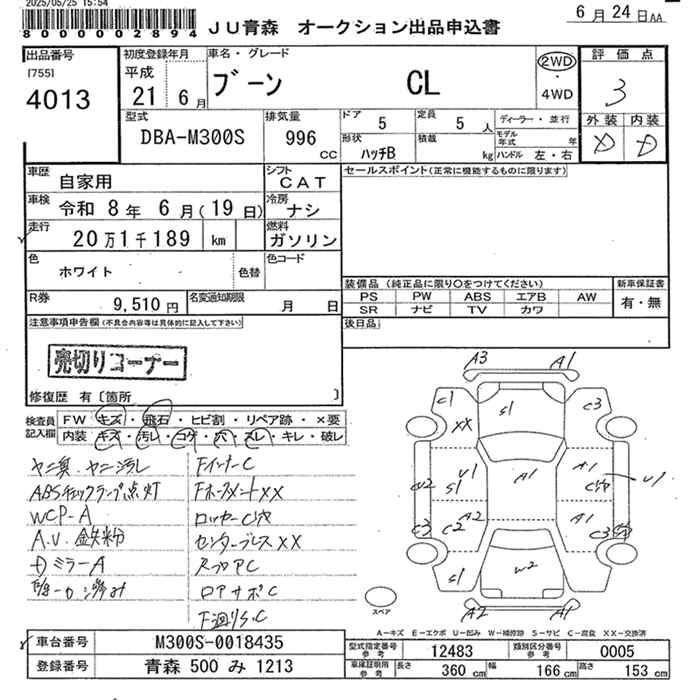 2025/05/25 15:54
8000002894
JU青森 オークション出品申込書
6月24日AA
出品番号
[755]
4013
初度登録年月
平成
21 6月
車名・グレード
ブーン CL
2WD
・
4WD
評価点
3
外装 内装
D D
型式
DBA-M300S
排気量
996 cc
ドア
5
定員
5人
ディーラー・並行
形状
ハッチB
積載
kg
モデル年式 年
ハンドル 左・右
車歴
自家用
シフト
CAT
セールスポイント(正常に機能するものに限ります)
車検
令和 8年 6月(19日)
冷房
ナシ
走行
20万1千189 km
燃料
ガソリン
色
ホワイト
色替
色コード
装備品 (純正品に限り○をつけてください)
PS PW ABS エアB AW
SR ナビ TV カワ
新車保証書
有・無
R券
9,510円
名変通知期限
月 日
後日品
注意事項申告欄(不具合内容等は具体的に記入して下さい)
売切りコーナー
修復歴 有〔箇所 〕
検査員記入欄
FW キズ・飛石・ヒビ割・リペア跡・×要
内装 キズ・汚レ・コゲ・穴・スレ・キレ・破レ
ヤニ臭・ヤニ汚レ
ABSチェックランプ点灯
WCP-A
A.V. 鉄粉
DミラーA
FインナーC
FホースメントXX
ロッカーC穴
センターブレスXX
ステアC
ロアサポC
F廻りS.C
A3 A1
C1 S1 C3
XX
U1 A1 A1 U1
U2 S1 C穴
C3 C2 A2 A1 C3
S1 W2
A2 A1
スペア
A-キズ E-エクボ U-凹み W-補修跡 S-サビ C-腐食 XX-交換済
車台番号
M300S-0018435
登録番号
青森 500 み 1213
型式指定番号参考
12483
類別区分番号参考
0005
車庫証明用参考
長さ 360 cm
幅 166 cm
高さ 153 cm